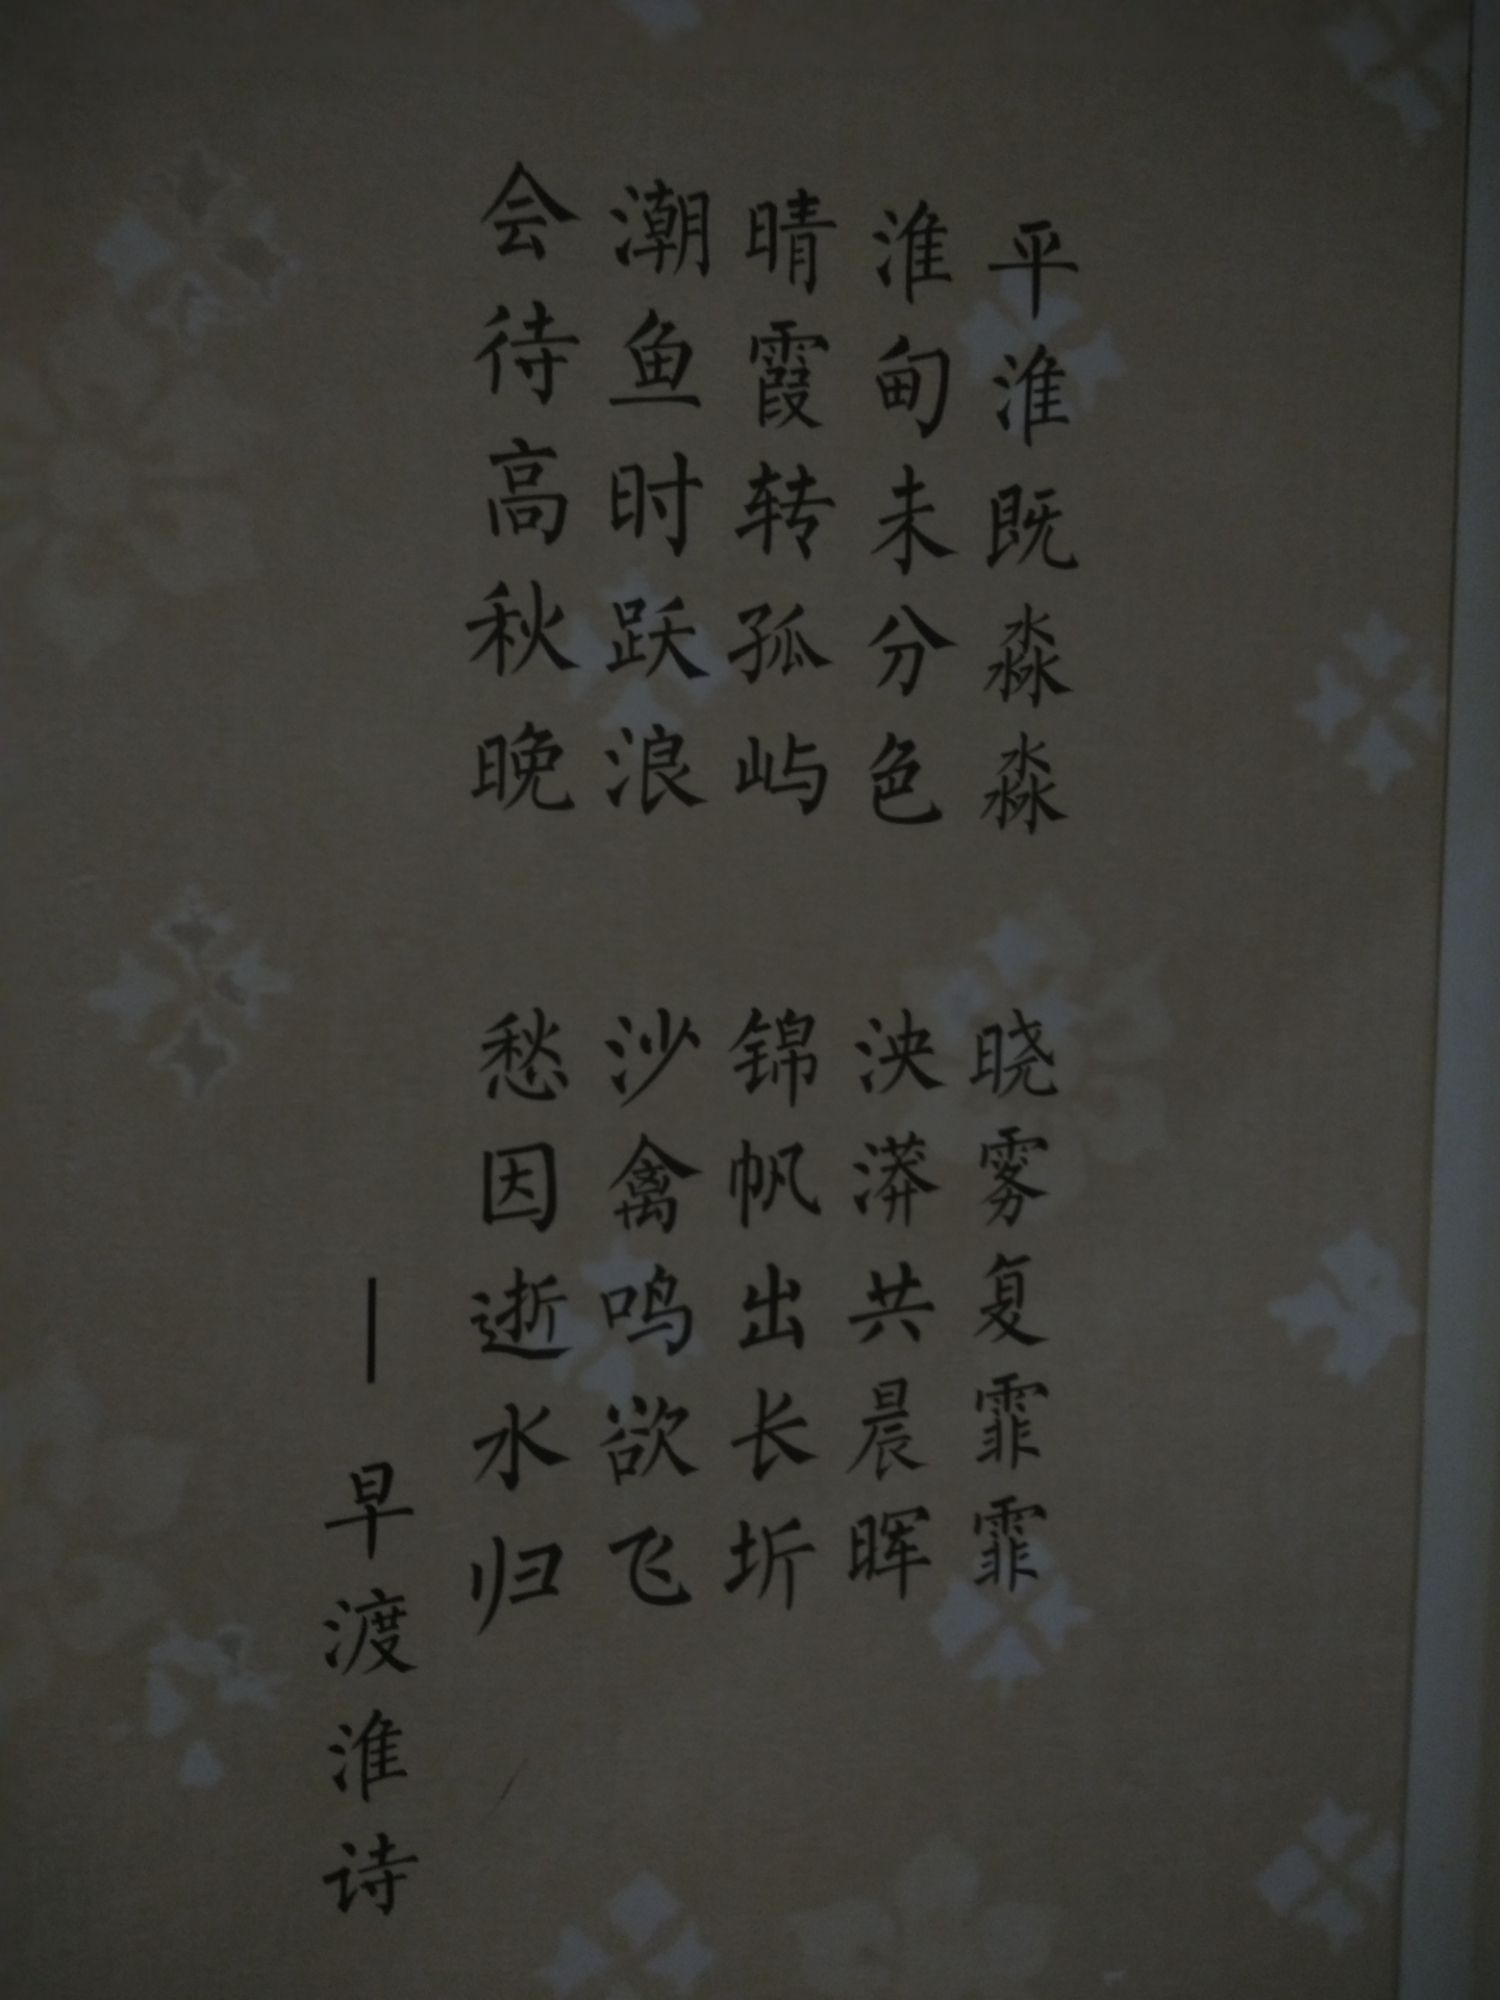 平淮既淼淼 晓雾复霏霏
淮甸未分色 泱漭共晨晖
晴霞转孤屿 锦帆出长圻
潮鱼时跃浪 沙禽鸣欲飞
会待高秋晚 愁因逝水归
—早渡淮诗